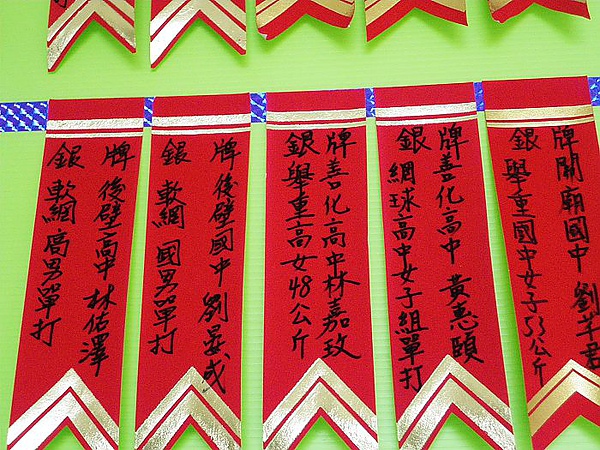 銀牌
後壁高中 林佑澤
軟網 高男單打
銀牌
後壁國中 劉晏成
軟網 國男單打
銀牌
善化高中林嘉玫
舉重高女48公斤
銀牌
善化高中 黃惠頤
網球高中女子組單打
銀牌
關廟國中 劉芊君
舉重國中女子53公斤